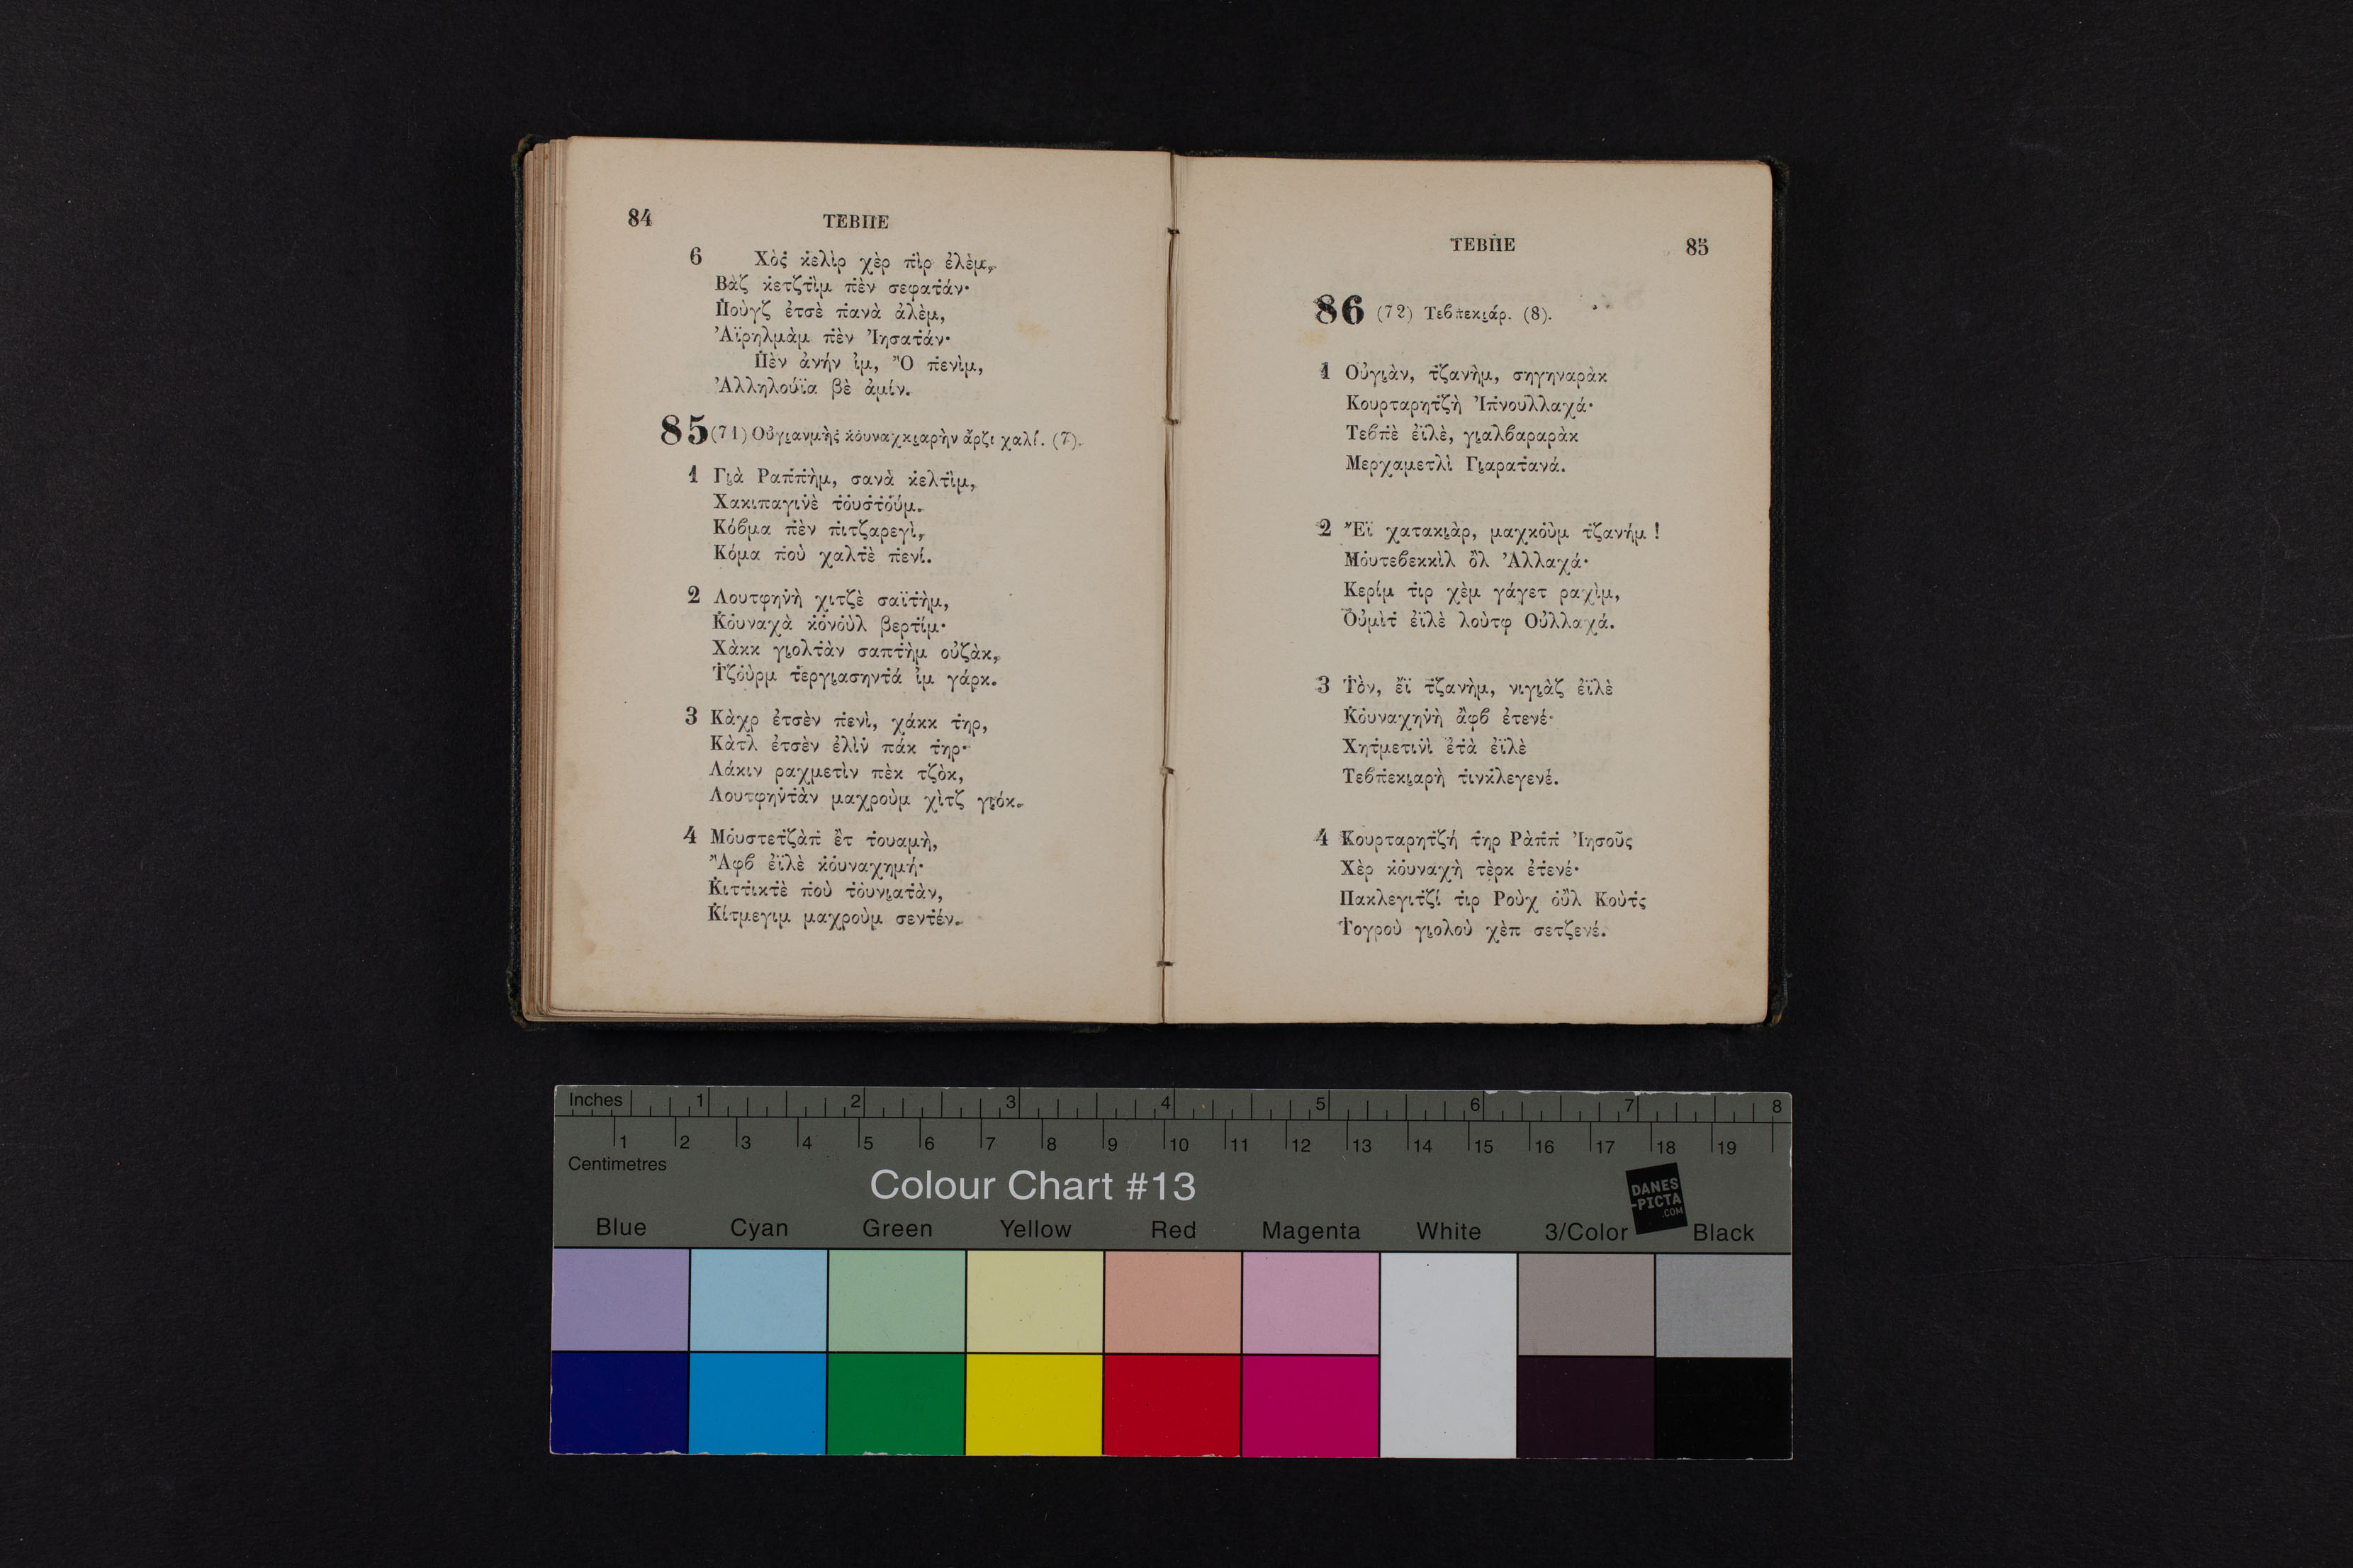 84
ΤΕΒΠ̇Ε
6 Χὸς̇ κ̇ελὶρ χὲρ π̇ὶρ ἐλὲμ,
Βὰζ κ̇ετζτ̇ὶμ π̇ὲν σεφατ̇άν·
Π̇οὺγζ ἐτσὲ π̇ανὰ ἀλὲμ,
Ἀϊρηλμὰμ π̇ὲν Ἰησατ̇άν·
Π̇ὲν ἀνήν ἰμ, Ὂ π̇ενὶμ,
Ἀλληλούϊα βὲ ἀμίν.
85 (71) Οὐγι̰ανμὴς̇ κ̇ο̇υναχκι̰αρὴν ἄρζι χαλί. (7).
1 Γι̰ὰ Ραπ̇π̇ὴμ, σανὰ κ̇ελτ̇ὶμ,
Χακιπαγιν̇ὲ τ̇ο̇υς̇τ̇ο̇ύμ.
Κόβμα π̇ὲν π̇ιτζαρεγὶ,
Κόμα π̇οὺ χαλτ̇ὲ π̇ενί.
2 Λουτφην̇ὴ χιτζὲ σαϊτ̇ὴμ,
Κ̇ο̇υναχὰ κ̇ο̇νο̇ὺλ βερτ̇ίμ·
Χὰκκ γι̰ολτ̇ὰν σαπτ̇ὴμ οὐζὰκ,
Τ̇ζο̇ὺρμ τ̇εργι̰ασηντ̇ά ἰμ γάρκ.
3 Κὰχρ ἐτσὲν π̇ενὶ, χάκκ τ̇ηρ,
Κὰτλ ἐτσὲν ἐλὶν̇ πάκ τ̇ηρ·
Λάκιν ραχμετὶν πὲκ τζὸκ,
Λουτφην̇τ̇ὰν μαχροὺμ χὶτζ γι̰όκ.
4 Μο̇υστετ̇ζὰπ̇ ἒτ τ̇ουαμὴ,
Ἂφβ ἐϊλὲ κ̇ο̇υναχημή·
Κ̇ιττ̇ικτ̇ὲ π̇οὺ τ̇ο̇υνι̰ατ̇ὰν,
Κ̇ίτμεγιμ μαχροὺμ σεντ̇έν.
ΤΕΒΠ̇Ε
85
86 (72) Τεβπ̇εκι̰άρ. (8).
1 Οὐγι̰ὰν, τ̇ζανὴμ, σηγηναρὰκ
Κουρταρητ̇ζὴ Ἰπ̇νουλλαχά·
Τεβπ̇ὲ ἐϊλὲ, γι̰αλβαραρὰκ
Μερχαμετλὶ Γι̰αρατ̇ανά.
2 Ἒϊ χατακι̰ὰρ, μαχκο̇ὺμ τ̇ζανήμ !
Μο̇υτεβεκκὶλ ὂλ Ἀλλαχά·
Κερίμ τ̇ιρ χὲμ γάγετ ραχὶμ,
Ο̇ὐμὶτ̇ ἐϊλὲ λοὺτφ Οὐλλαχά.
3 Τ̇ὸν, ἔϊ τ̇ζανὴμ, νιγι̰ὰζ ἐϊλὲ
Κ̇ο̇υναχην̇ὴ ἂφβ ἐτενέ·
Χητ̇μετιν̇ὶ ἐτ̇ὰ ἐϊλὲ
Τεβπ̇εκι̰αρὴ τ̇ινκ̇λεγενέ.
4 Κουρταρητ̇ζή τ̇ηρ Ρὰπ̇π̇ Ἰησοῦς
Χὲρ κ̇ο̇υναχὴ τὲρκ ἐτ̇ενέ·
Πακλεγιτ̇ζί τ̇ιρ Ροὺχ ο̇ὒλ Κοὺτ̇ς
Τ̇ογροὺ γι̰ολοὺ χὲπ σετζενέ.
Inches 1 2 3 4 5 6 7 8
1 2 3 4 5 6 7 8 9 10 11 12 13 14 15 16 17 18 19
Centimetres
Colour Chart #13
DANES
-PICTA
.COM
Blue Cyan Green Yellow Red Magenta White 3/Color Black